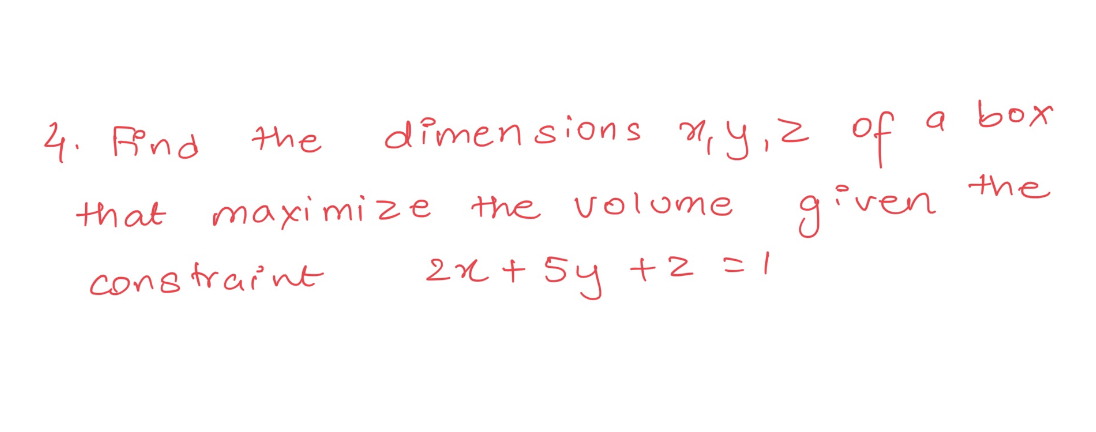 4. Find the dimensions x, y, z of a box
that maximize the volume given the
constraint 2x + 5y + z = 1